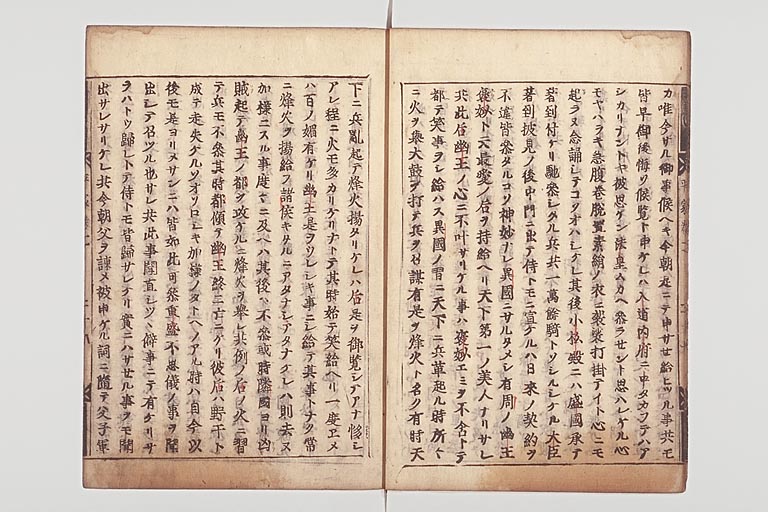 カ唯今サル御事候ヘキ今朝是ニテ申サせ給ヒツル事共モ
皆早御後悔ヲ候覧ト申ケレハ入道内府ニ中タカフテハアテ
シカリナントヤ被思ケン法皇ムカヘ参ラセント思ハレケル心
モヤハラキ急腹巻脱置素絹ノ衣ニ袈裟打掛テイト心ニモ
起ラヌ念誦シテコソオハシケレ其後小松殿ニハ盛國承テ
着到付ケリ馳参シケル兵共一萬餘騎トソシルシケル大臣
着到披見ノ後中門ニ出テ侍トモニ宣ケルハ日来ノ契約ヲ
不違皆参タルコソ神妙ナレ異國ニサルタメシ有周ノ幽王
褒姒ト云最愛ノ后ヲ持給ヘリ天下第一ノ美人ナリサレ
共此后幽王ノ心ニ不叶サリケル事ハ褒姒エミヲ不含トテ
都テ笑事ヲシ給ハス異國ノ習ニ天下ニ兵革起ル時所々
ニ火ヲ挙大鼓ヲ打テ兵ヲ召謀有是ヲ烽火ト名ク有時天
下ニ兵亂起テ烽火揚タリケレハ后是ヲ御覧シアナ怪シ
アレ程ニ火モ多カリケリナトテ其時始テ笑給ヘリ一度ヱメ
ハ百ノ媚有ケリ幽王是ヲウレシキ事ニシ給テ其事トナク常
ニ烽火ヲ揚給フ諸侯キタルニアタナシアタナケレハ則去ヌ
加様ニスル事度々ニ及ヘハ其後ハ不参或時隣國ヨリ凶
賊起テ幽王ノ都ヲ攻ケルニ烽火ヲ挙レ共例ノ后ノ火ニ習
テ兵モ不参其時都傾テ幽王終ニ亡ニケリ彼后ハ野干ト
成テ走失ケルソオソロシキ加様ノタトヘノアル時ハ自今以
後モ是ヨリメサンニハ皆如此可参重盛不思儀ノ事ヲ聞
出シテ召ツル也サレ共此事聞直シツヽ僻事ニテ有ケリサ
ラハトウ歸レトテ侍トモ皆歸サレケリ實ニハサせル事ヲモ聞
出サレサリケレ共今朝父ヲ諫メ被申ケル詞ニ隨テ父子軍